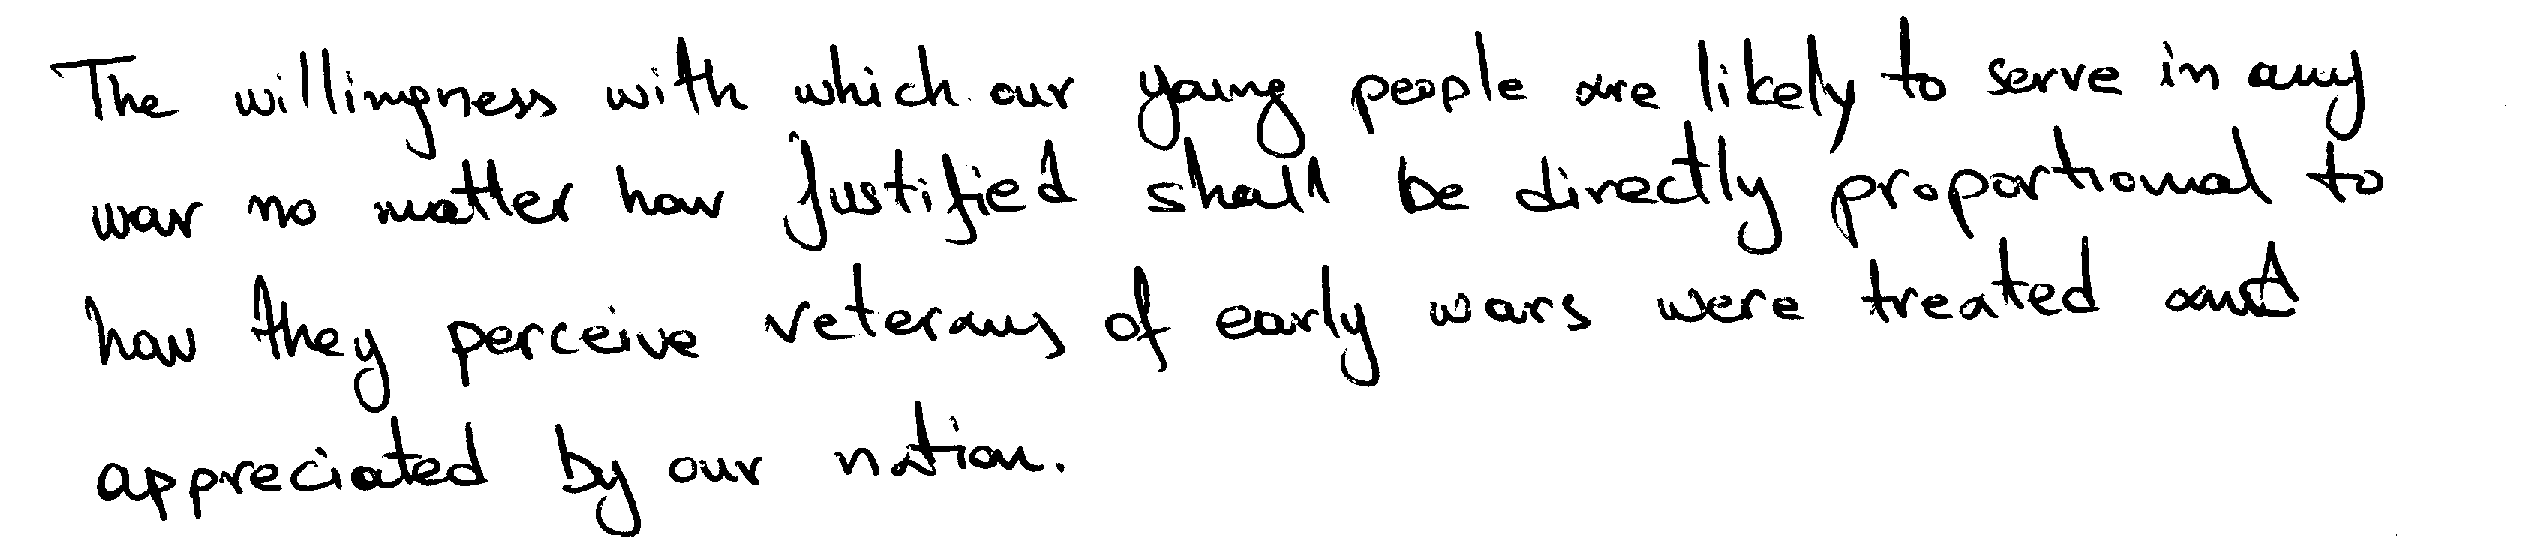 The willingness with which our young people are likely to serve in any
war no matter how justified shall be directly proportional to
how they perceive veterans of early wars were treated and
appreciated by our nation.